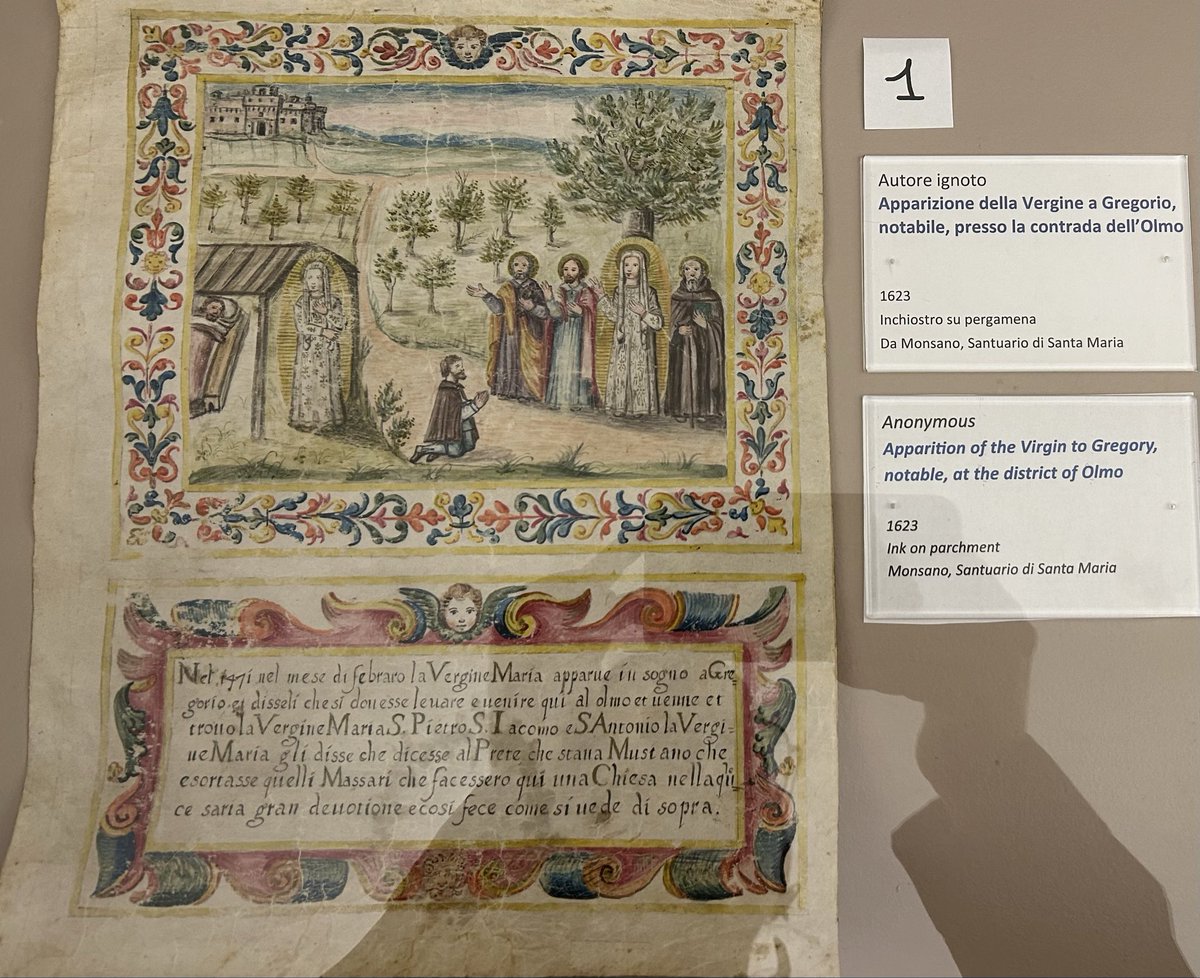 Nel 1471 nel mese di febraro la Vergine Maria apparue in sogno a Gre=
gorio et disseli che si douesse leuare e uenire qui al olmo et uenne et
trouo la Vergine Maria S. Pietro S. Iacomo e S Antonio la Vergi=
ne Maria gli disse che dicesse al Prete che staua Must ano che
esortasse quelli Massari che facessero qui una Chiesa nella
ce saria gran deuotione e cosi fece come si uede di sopra.
1
Autore ignoto
Apparizione della Vergine a Gregorio,
notabile, presso la contrada dell'Olmo
1623
Inchiostro su pergamena
Da Monsano, Santuario di Santa Maria
Anonymous
Apparition of the Virgin to Gregory,
notable, at the district of Olmo
1623
Ink on parchment
Monsano, Santuario di Santa Maria